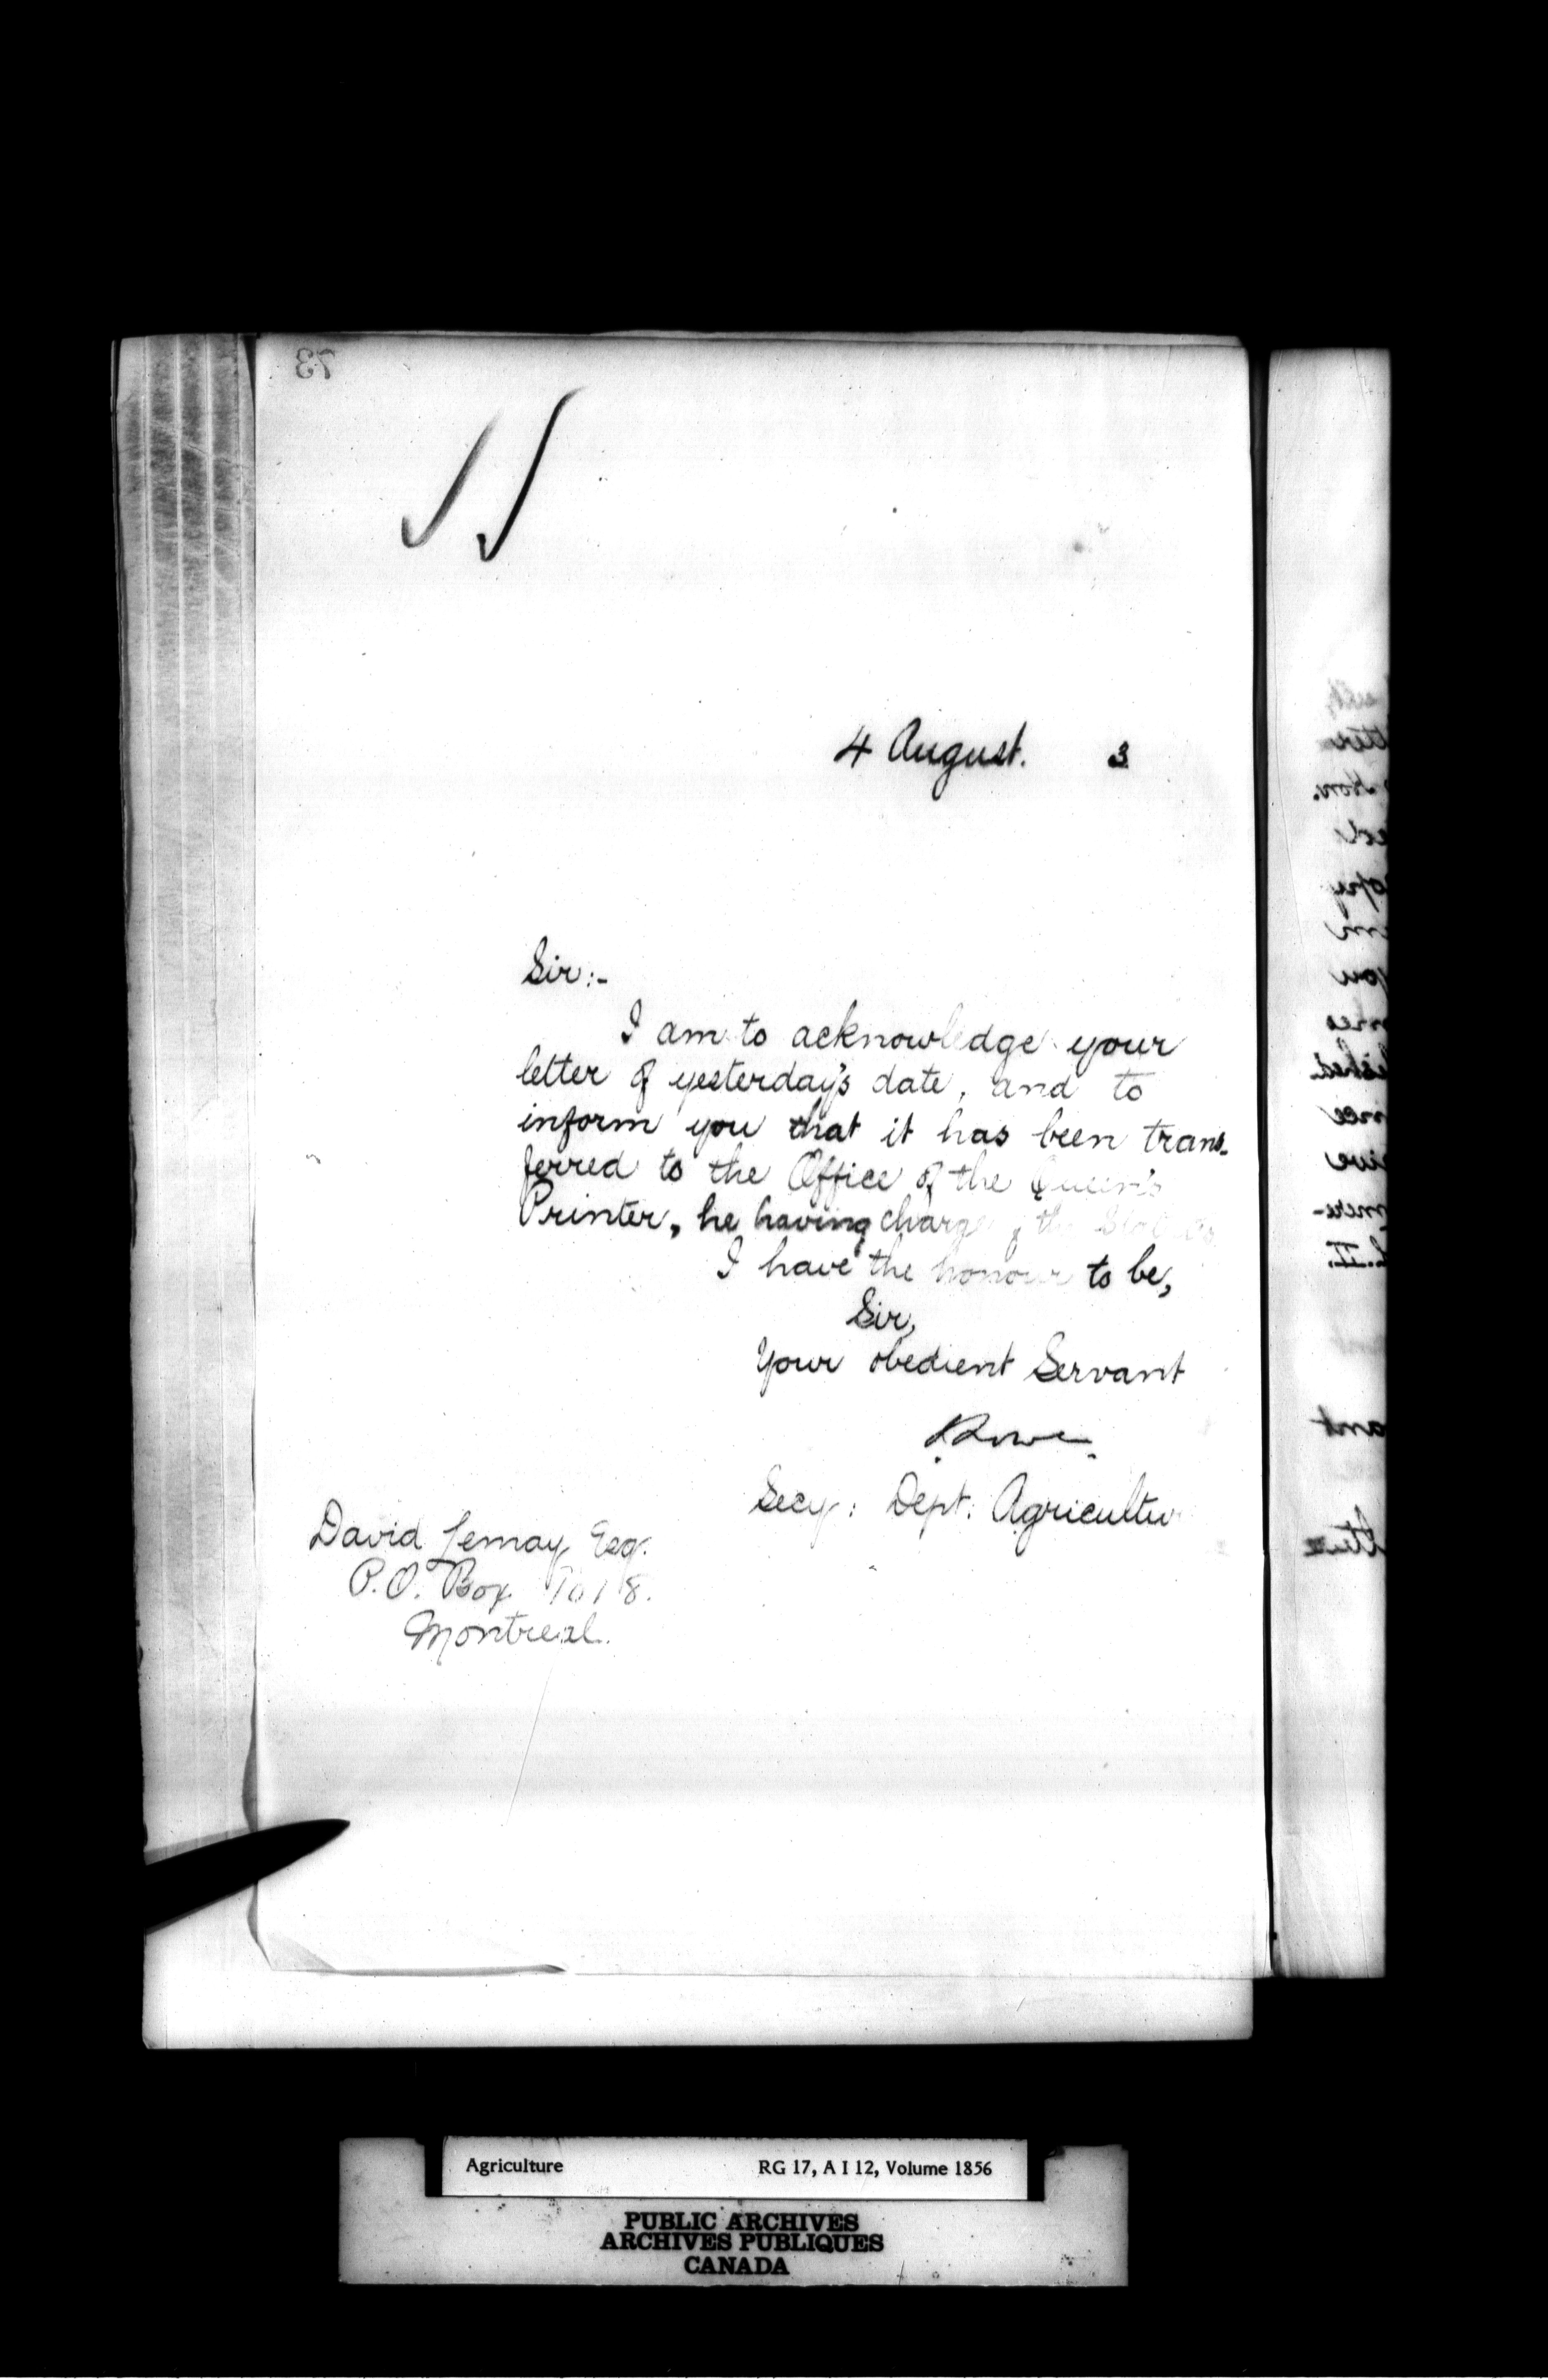 73
4 August. 3
Sir:-
I am to acknowledge your
letter of yesterday's date, and to
inform you that it has been trans-
ferred to the Office of the Queen's
Printer, he having charge of the Statutes
I have the honour to be,
Sir,
Your obedient Servant
Secy: Dept: Agriculture
David Lemay Esq.
P.O. Box 1018.
Montreal.
Agriculture RG 17, A I 12, Volume 1856
PUBLIC ARCHIVES
ARCHIVES PUBLIQUES
CANADA